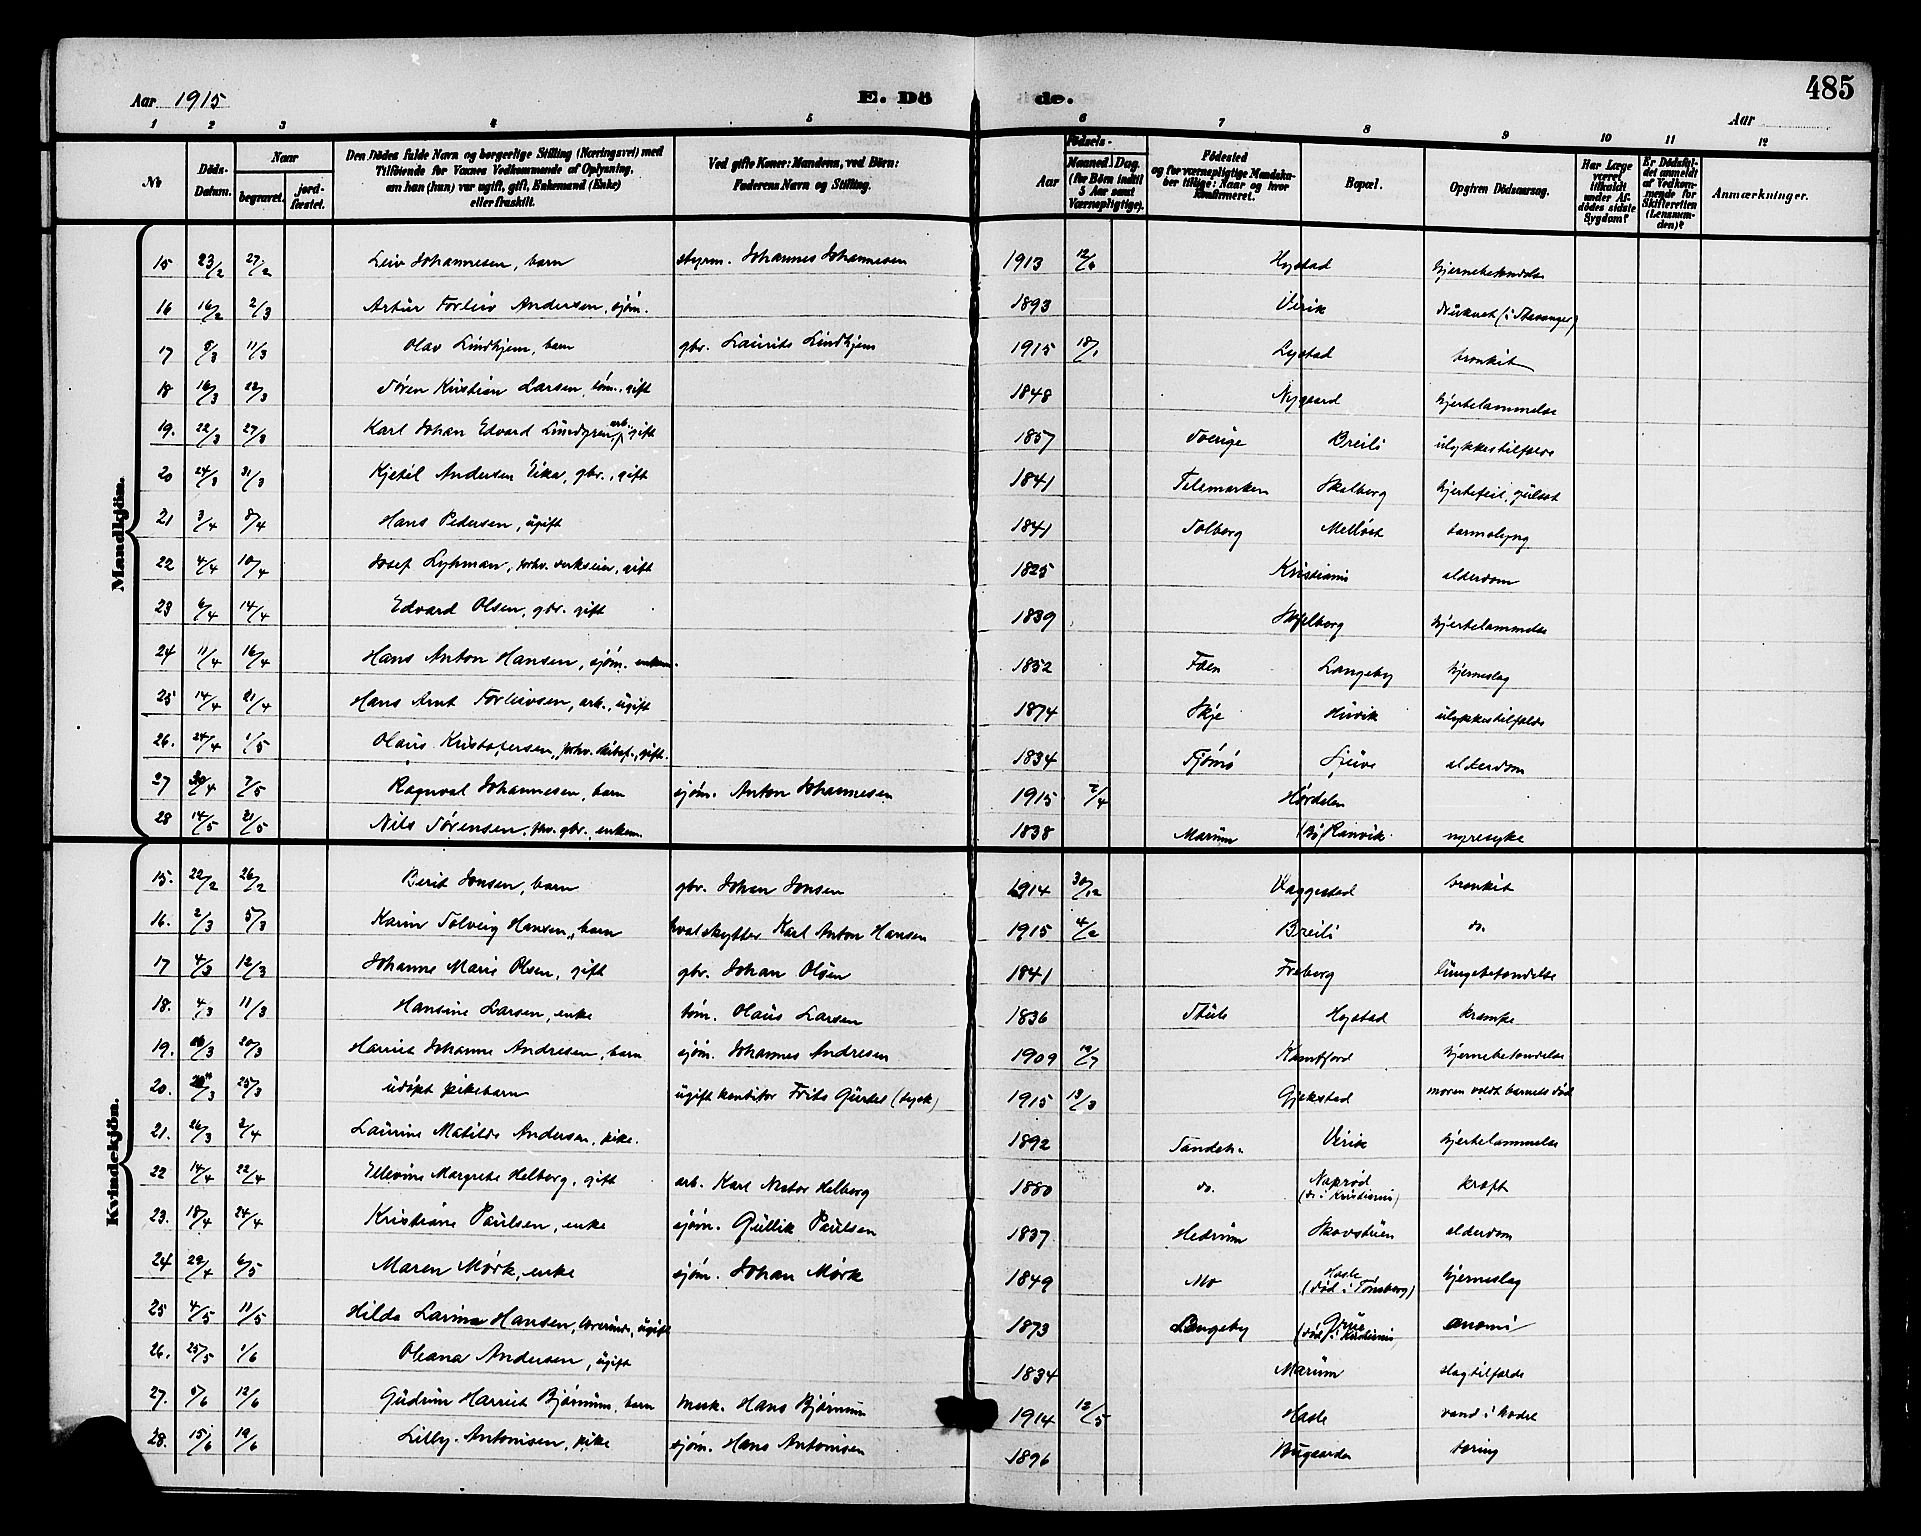 485
Aar 1915 E. Döde. Aar
1 2 3 4 5 6 7 8 9 10 11 12
No
Döds-Datum.
Naar begravet. jordfæstet.
Den Dödes fulde Navn og borgerlige Stilling (Næringsvei) med Tilföiende for Voxnes Vedkommende af Oplysning, om han (hun) var ugift, gift, Enkemand (Enke) eller fraskilt.
Ved gifte Koner: Mandens, ved Börn: Faderens Navn og Stilling.
Födsels-
Aar Maaned. Dag. (for Börn indtil 5 Aar samt Værnepligtige).
Födested og for værnepligtige Mandskaber tillige: Naar og hvor konfirmeret.
Bopæl.
Opgiven Dödsaarsag.
Har Læge været tilkaldt under Afdödes sidste Sygdom?
Er Dödsfaldet anmeldt af Vedkommende for Skifteretten (Lensmanden)?
Anmærkninger.
Mandkjön.
15 23/2 27/2 Leiv Johannesen, barn styrm. Johannes Johannesen 1913 Hystad hjernebetændelse
16 16/2 2/3 Artur Torleiv Andersen, sjøm. 1893 Virik druknet (i Stavanger)
17 11/3 Olav Lindhjem, barn gbr. Laurits Lindhjem 1915 18/1 Lystad bronkit
18 16/3 22/3 Søren Kristian Larsen, tøm., gift 1848 Nygaard hjertelammelse
19. 22/3 27/3 Karl Johan Edvard Lundgren, arb. gift 1857 Sverige Breili ulykkestilfælde
20 24/3 31/3 Kjetil Andersen Eika, gbr., gift 1841 Telemarken Skalberg hjertefeil, gulsot
21 3/4 8/4 Hans Pedersen, ugift 1841 Solberg tarmslyng
22 4/4 10/4 Josef Lyhman, forhv. verkseier, gift 1825 Kristiania alderdom
23 6/4 14/4 Edvard Olsen, gbr. gift 1839 Skjelberg hjertelammelse
24 11/4 16/4 Hans Anton Hansen, sjøm. enkem. 1852 Føen Langeby hjerneslag
25 14/4 21/4 Hans Arnt Torleivsen, arb., ugift 1874 Skje Huvik ulykkestilfælde
26. 24/4 1/5 Olaus Kristofersen, forhv. skibsf., gift. 1834 Tjømø alderdom
27 30/4 7/5 Ragnval Johannesen, barn sjøm. Anton Johannesen 1915 2/4 Hørdalen
28 14/5 21/5 Nils Sørensen, fhv. gbr., enkem. 1838 Marum Ranvik. nyresyke
Kvindekjön.
15. 22/2 26/2 Berit Jonsen, barn gbr. Johan Jonsen 1914 30/12 Vaggestad bronkit
16. 2/3 5/3 Karin Solveig Hansen, barn hvalskytter Karl Anton Hansen 1915 4/2 Breili do.
17 4/3 12/3 Johanne Marie Olsen, gift gbr. Johan Olsen 1841 Freberg lungebetændelse
18. 4/3 11/3 Hansine Larsen, enke tøm. Olaus Larsen 1836 Stub Hystad krampe
19. 16/3 20/3 Harriet Johanne Andresen, barn sjøm. Johannes Andresen 1909 19/7 Kamfjord hjernebetændelse
20. 25/3 udøpt pikebarn ugift konditor Frits Gürtel (tysk) 1915 13/3 Gjekstad moren voldt barnets død
21. 26/3 2/4 Laurine Matilde Andersen, pike. 1892 Sandeh. Virik hjertelammelse
22 14/4 22/4 Ellevine Margrete Helberg, gift arb. Karl Nestor Helberg 1880 do. Nøprød (d. i Kristiania) kræft
23. 18/4 24/4 Kristiane Paulsen, enke sjøm. Gullik Paulsen 1837 Hedrum Skovstuen alderdom
24 29/4 6/5 Maren Mørk, enke sjøm. Johan Mørk 1849 Mo Hasle (død i Tønsberg) hjerneslag
25 4/5 11/5 Hilda Larine Hansen, lærerinde, ugift 1873 Langeby (død i Kristiania) anæmi
26. 25/5 1/6 Oleana Andersen, ugift 1834 Marum slagtilfælde
27. 5/6 12/6 Gudrun Harriet Bjørnum, barn mask. Hans Bjørnum 1914 12/5 Hasle vand i hodet
28. 15/6 19/6 Lilly Antonisen, pike sjøm. Hans Antonisen 1896 Bugaarden tæring